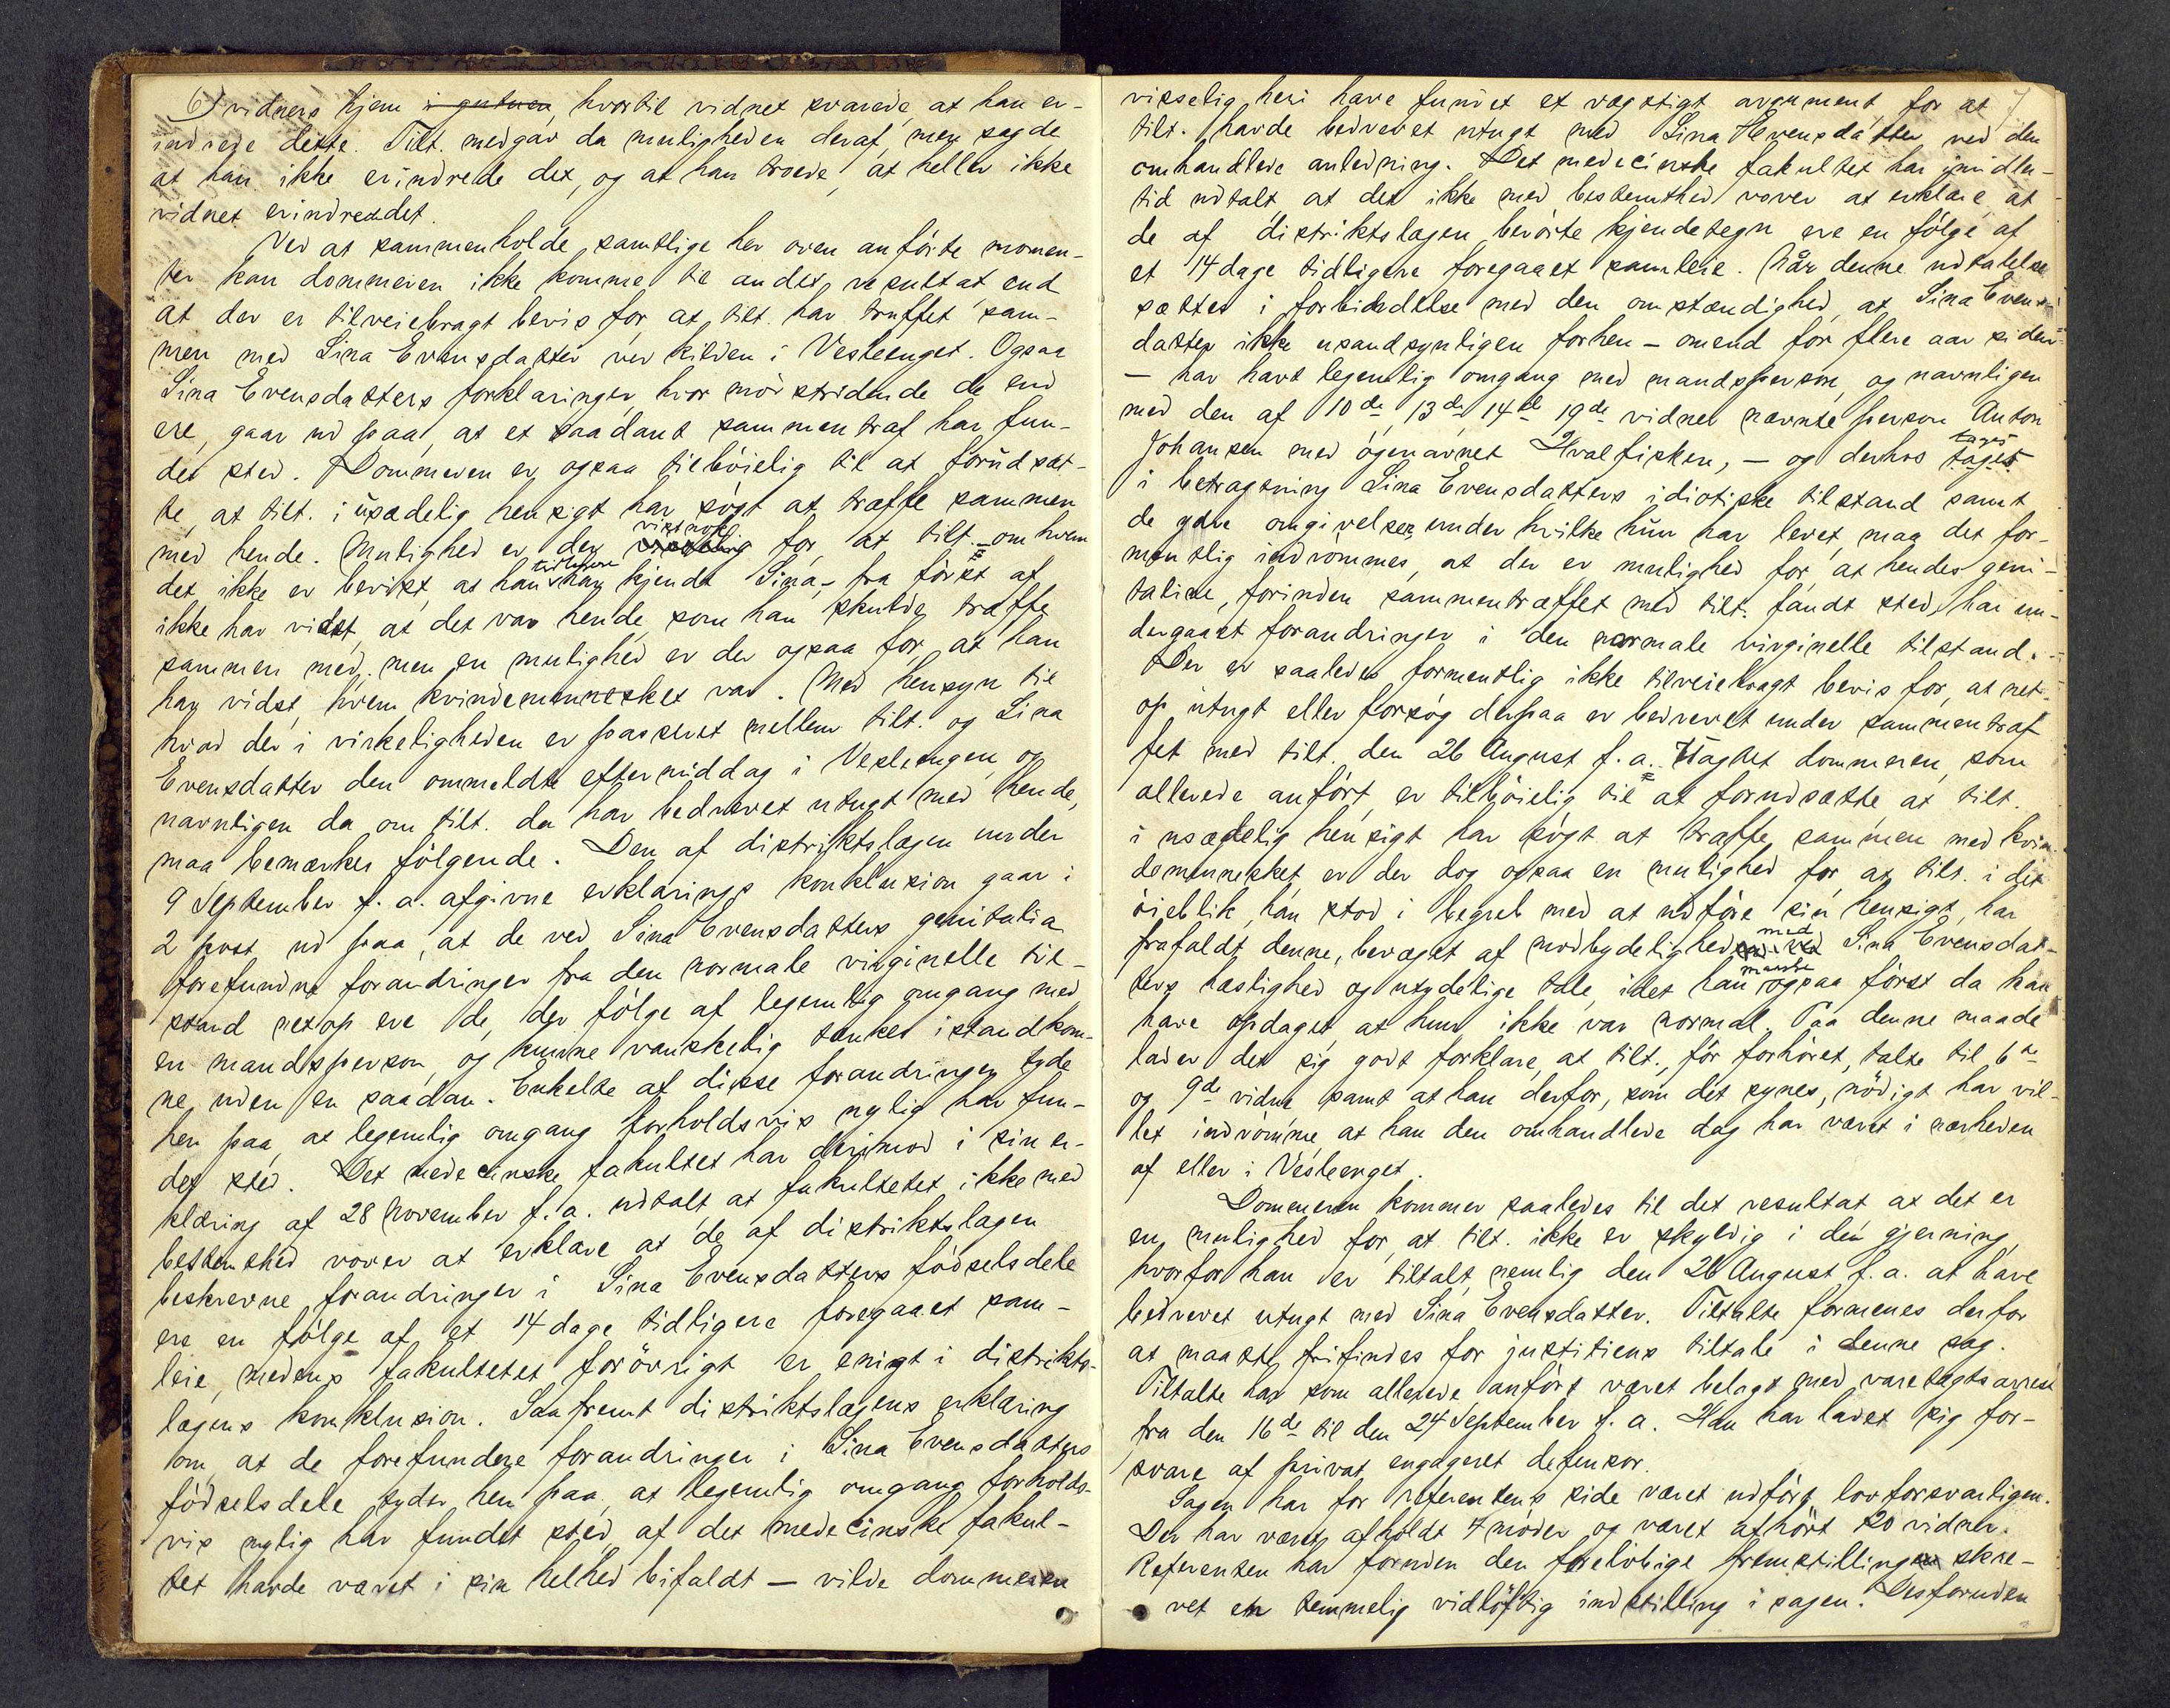 6) vidners hjem i gutuen, hvortil vidnet svarede, at han er-
indrede dette. Tilt. medgav da muligheden deraf, men sagde
at han ikke erindrede det, og at han troede, at heller ikke
vidnet erindret det.
Ved at sammenholde samtlige her oven anförte momen-
ter kan dommeren ikke komme til andet resultat end
at der er tilveiebragt bevis for, at tilt. har truffet sam-
men med Lina Evensdatter ved kilden i Vesleenget. Ogsaa
Lina Evensdatters forklaringer, hvor modstridende de end
ere, gaar ud paa, at et saadant sammentraf har fun-
det sted. Dommeren er ogsaa tilböielig til at forudsæt-
te, at tilt. i usædelig hensigt har søgt at træffe sammen
med hende. Mulighed er der vistnok for, at tilt. – om hvem
det ikke er bevist, at han tidligere har kjendt Lina, – fra först af
ikke har vidst, at det var hende, som han skulde træffe
sammen med, men en mulighed er der ogsaa for, at han
har vidst, hvem kvindemennesket var. Med hensyn til
hvad der i virkeligheden er passeret mellem tilt. og Lina
Evensdatter den ommeldte eftermiddag i Vesleengen, og
navnligen da om tilt. da har bedrevet utugt med hende,
maa bemærkes fölgende. Den af distriktslægen under
9 September f. a. afgivne erklærings konklusion gaar i
2 post ud paa, at de ved Lina Evensdatters genitalia
forefundne forandringer fra den normale virginelle til-
stand netop ere de, der fölge af legemlig omgang med
en mandsperson, og kunne vanskelig tænkes istandkom-
ne uden en saadan. Enkelte af disse forandringer tyde
hen paa, at legemlig omgang forholdsvis nylig har fun-
det sted. Det medecinske fakultet har derimod i sin er-
klæring af 28 November f. a. udtalt at fakultetet ikke med
bestemthed vover at erklære at de af distriktslægen
beskrevne forandringer i Lina Evensdatters födselsdele
ere en fölge af et 14 dage tidligere foregaaet sam-
leie, medens fakultetet forövrigt er enigt i distrikts-
lægens konklusion. Saafremt distriktslægens erklæring
om, at de forefundne forandringer i Lina Evensdatters
födselsdele tyder hen paa, at legemlig omgang forholds-
vis nylig har fundet sted, af det medecinske fakul-
tet havde været i sin helhed bifaldt – vilde dommeren
7
visselig heri have fundet et vægtigt argument for at
tilt. havde bedrevet utugt med Lina Evensdatter ved den
omhandlede anledning. Det medecinske fakultet har imidler-
tid udtalt, at det ikke med bestemthed vover at erklære, at
de af distriktslægen berörte kjendetegn ere en fölge af
et 14 dage tidligere foregaaet samleie. Når denne udtalelse
sættes i forbindelse med den omstændighed, at Lina Evens-
datter ikke usandsynligen forhen – omend for flere aar siden
– har havt legemlig omgang med mandsperson, og navnligen
med den af 10de, 13de, 14de 19de vidne nævnte person Anton
Johansen med ögenavnet Hvalfisken, – og derhos tages
i betragtning Lina Evensdatters idiotiske tilstand samt
de ydre omgivelser, under hvilke hun har levet, maa det for-
mentlig indrömmes, at der er mulighed for, at hendes geni-
taliae, forinden sammentræffet med tilt. fandt sted, har un-
dergaaet forandringer i den normale virginelle tilstand.
Der er saaledes formentlig ikke tilveiebragt bevis for, at net-
op utugt eller forsög derpaa er bedrevet under sammentraf-
fet med tilt. den 26 August f. a. Uagtet dommeren, som
allerede anfört, er tilböielig til at forudsætte at tilt.
i usædelig hensigt har sögt at træffe sammen med kvin-
demennesket, er der dog ogsaa en mulighed for at tilt. i det
öieblik, han stod i begreb med at udföre sin hensigt, har
frafaldt denne, bevæget af modbydelighed med Lina Evensdat-
ters hæslighed og utydelige tale, idet han maaske ogsaa först da kan
have opdaget, at hun ikke var normal. Paa denne maade
lader det sig godt forklare, at tilt., för forhöret, talte til 6te
og 9de vidne samt at han derfor, som det synes, nödigt har vil-
let indrömme, at han den omhandlede dag har været i nærheden
af eller i Vesleenget.
Dommeren kommer saaledes til det resultat at det er
en mulighed for, at tilt. ikke er skyldig i den gjerning,
hvorfor han er tiltalt, nemlig den 26 August f. a. at have
bedrevet utugt med Lina Evensdatter. Tiltalte formenes derfor
at maatte frifindes for justitiens tiltale i denne sag.
Tiltalte har som allerede anfört været belagt med varetægtsarrest
fra den 16de til den 24 September f. a. Han har ladet sig for-
svare af privat engageret defensor.
Sagen har for referentens side været udfört lovforsvarligen.
Der har været afholdt 7 möder og været afhört 20 vidner.
Referenten har foruden den forelöbige fremstilling skre-
vet en temmelig vidlöftig indstilling i sagen. Desforuden